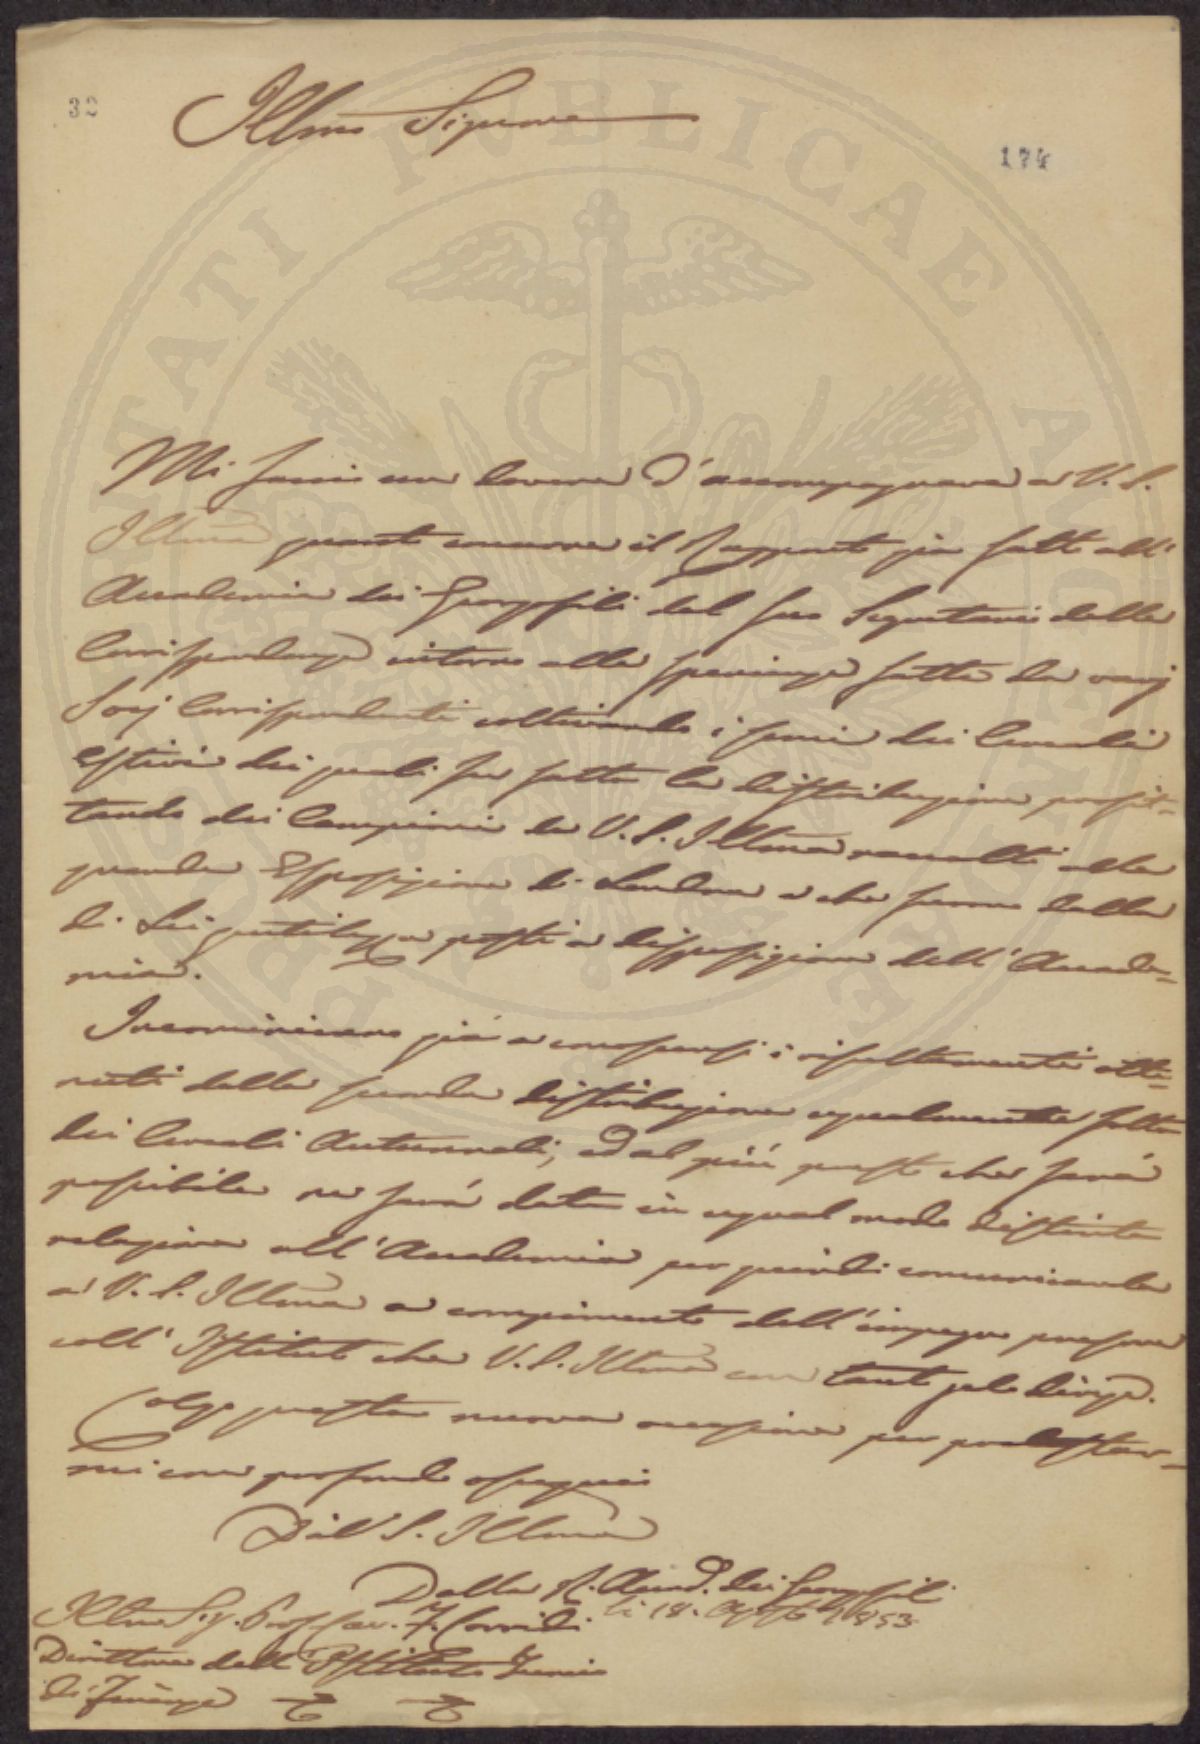 32
Illmo Signore
174
Mi faccio un dovere d'accompagnare a V. S.
Illma quanto concerne il Rapporto già fatto all'
Accademia dei Georgofili dal suo Segretario delle
Corrispondenze intorno alle sperienze fatte da varj
Socj Corrispondenti coltivando i semi dei Cereali
estivi dei quali fu fatta la distribuzione profit=
tando dei Campioni da V. S. Illma raccolti alla
grande Esposizione di Londra e che furono dalla
di Lei gentilezza posti a disposizione dell'Accade=
mia.
Incominciano già a conoscersi i resultamenti otte=
nuti dalla seconda distribuzione egualmente fatta
dei Cereali Autunnali, ed al più presto che sarà
possibile ne sarà data in egual modo distinta
relazione all'Accademia per quindi comunicarla
a V. S. Illma a compimento dell'impegno preso
coll'Istituto che V. S. Illma con tanto zelo dirige.
Colgo questa nuova occasione per protestar=
mi con profondo ossequio
Di V. S. Illma
Dalla R. Accad. dei Georgofili
li 18. Agosto 1853
Illmo Sig. Prof. Cav. F. Corridi
Direttore dell'Istituto Tecnico
di Firenze
PVBLICAE